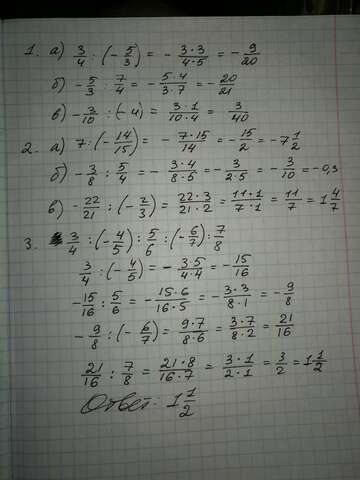 1. а) 3/4 : (- 5/3) = - 3·3/4·5 = - 9/20
б) - 5/3 : 7/4 = - 5·4/3·7 = - 20/21
в) - 3/10 : (- 4) = 3·1/10·4 = 3/40
2. а) 7 : (- 14/15) = - 7·15/14 = - 15/2 = - 7 1/2
б) - 3/8 : 5/4 = - 3·4/8·5 = - 3/2·5 = - 3/10 = - 0,3
в) - 22/21 : (- 2/3) = 22·3/21·2 = 11·1/7·1 = 11/7 = 1 4/7
3. 3/4 : (- 4/5) : 5/6 : (- 6/7) : 7/8
3/4 : (- 4/5) = - 3·5/4·4 = - 15/16
- 15/16 : 5/6 = - 15·6/16·5 = - 3·3/8·1 = - 9/8
- 9/8 : (- 6/7) = 9·7/8·6 = 3·7/8·2 = 21/16
21/16 : 7/8 = 21·8/16·7 = 3·1/2·1 = 3/2 = 1 1/2
Ответ: 1 1/2